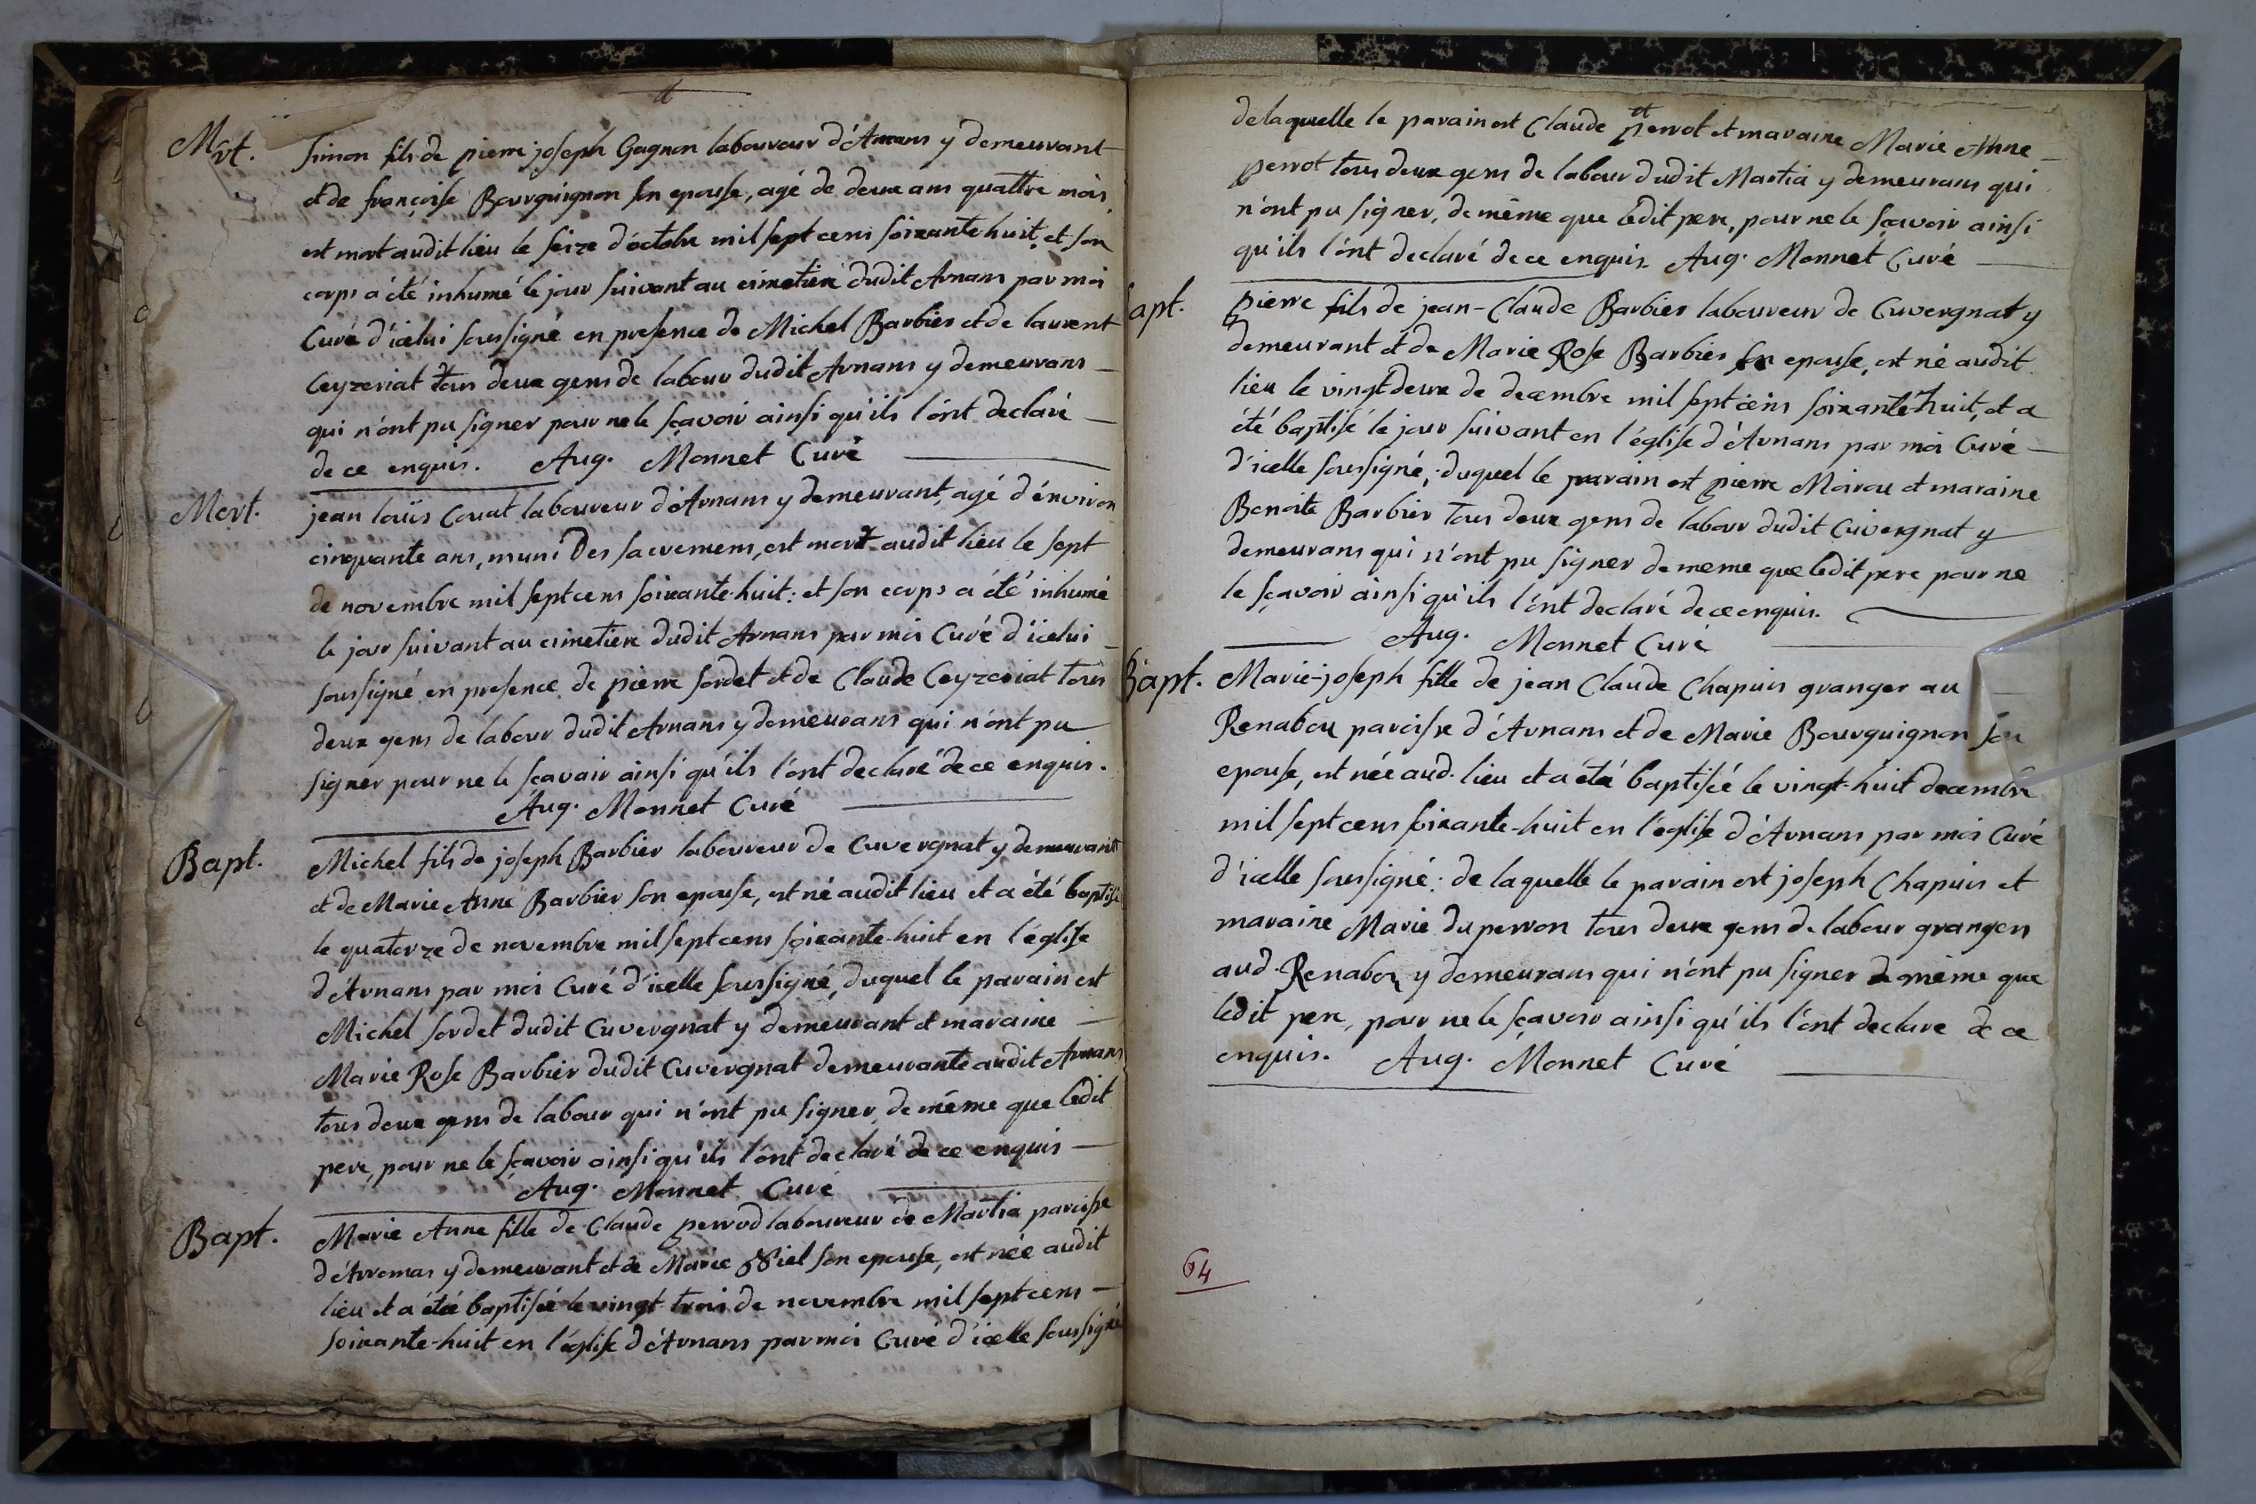 tt
Mrt.
Simon fils de pierre joseph Gagnon laboureur d'Arnans y demeurant
et de françoise Bourguignon son epouse, agé de deux ans quattre mois,
est mort audit lieu le seize d'octobre mil sept cens soixante huit, et son
corps a été inhumé le jour suivant au cimetiere dudit Arnans par moi
Curé d'icelui soussigné en presence de Michel Barbier et de laurent
Ceyzeriat tous deux gens de labour dudit Arnans y demeurans
qui n'ont pu signer pour ne le sçavoir ainsi qu'ils l'ont declaré
de ce enquis. Aug. Monnet Curé
Mort.
jean louis Couat laboureur d'Arnans y demeurant, agé d'environ
cinquante ans, muni Des sacremens, est mort audit lieu le sept
de novembre mil sept cens soixante-huit: et son corps a été inhumé
le jour suivant au cimetiere dudit Arnans par moi Curé d'icelui
soussigné en presence de pierre sordet et de Claude Ceyzeriat tous
deux gens de labour dudit Arnans y demeurans qui n'ont pu
signer pour ne le sçavoir ainsi qu'ils l'ont declaré de ce enquis.
Aug. Monnet Curé
Bapt.
Michel fils de joseph Barbier laboureur de Cuvergnat y demeurant
et de Marie Anne Barbier son epouse, est né audit lieu et a été baptisé
le quatorze de novembre mil sept cens soixante-huit en l'église
d'Arnans par moi Curé d'icelle soussigné, duquel le parain est
Michel sordet dudit Cuvergnat y demeurant et maraine
Marie Rose Barbier dudit Cuvergnat demeurante audit Arnans
tous deux gens de labour qui n'ont pu signer, de même que ledit
pere, pour ne le sçavoir ainsi qu'ils l'ont declaré de ce enquis
Aug. Monnet Curé
Bapt.
Marie Anne fille de Claude perrod laboureur de Martia paroisse
d'Arromas y demeurant et de Marie son epouse, est née audit
lieu et a été baptisée le vingt trois de novembre mil sept cens
soixante-huit en l'église d'Arnans par moi Curé d'icelle soussigné
tt
de laquelle le parain est Claude perrot et maraine Marie Anne
perrot tous deux gens de labour dudit Martia y demeurans qui
n'ont pu signer, de même que ledit pere, pour ne le sçavoir ainsi
qu'ils l'ont declaré de ce enquis. Aug. Monnet Curé
Bapt.
pierre fils de jean-Claude Barbier laboureur de Cuvergnat y
demeurant et de Marie Rose Barbier son epouse, est né audit
lieu le vingt deux de decembre mil sept cens soixante huit, et a
été baptisé le jour suivant en l'église d'Arnans par moi Curé
d'icelle soussigné; duquel le parain est pierre Moirou et maraine
Benoite Barbier tous deux gens de labour dudit Cuvergnat y
demeurans qui n'ont pu signer de meme que ledit pere pour ne
le sçavoir ainsi qu'ils l'ont declaré de ce enquis.
Aug. Monnet Curé
Bapt.
Marie-joseph fille de jean Claude Chapuis granger au
Renabou paroisse d'Arnans et de Marie Bourguignon son
epouse, est née aud. lieu et a été baptisée le vingt-huit decembre
mil sept cens soixante-huit en l'église d'Arnans par moi Curé
d'icelle soussigné: de laquelle le parain est joseph Chapuis et
maraine Marie duperron tous deux gens de labour grangers
aud. Renabou y demeurans qui n'ont pu signer de même que
ledit pere, pour ne le sçavoir ainsi qu'ils l'ont declare de ce
enquis. Aug. Monnet Curé
64